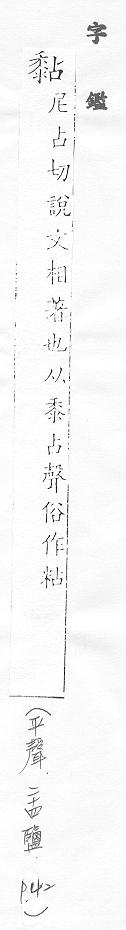 字鑑
黏尼占切說文相著也从黍占聲俗作粘
(平聲．二十四鹽．P.42)